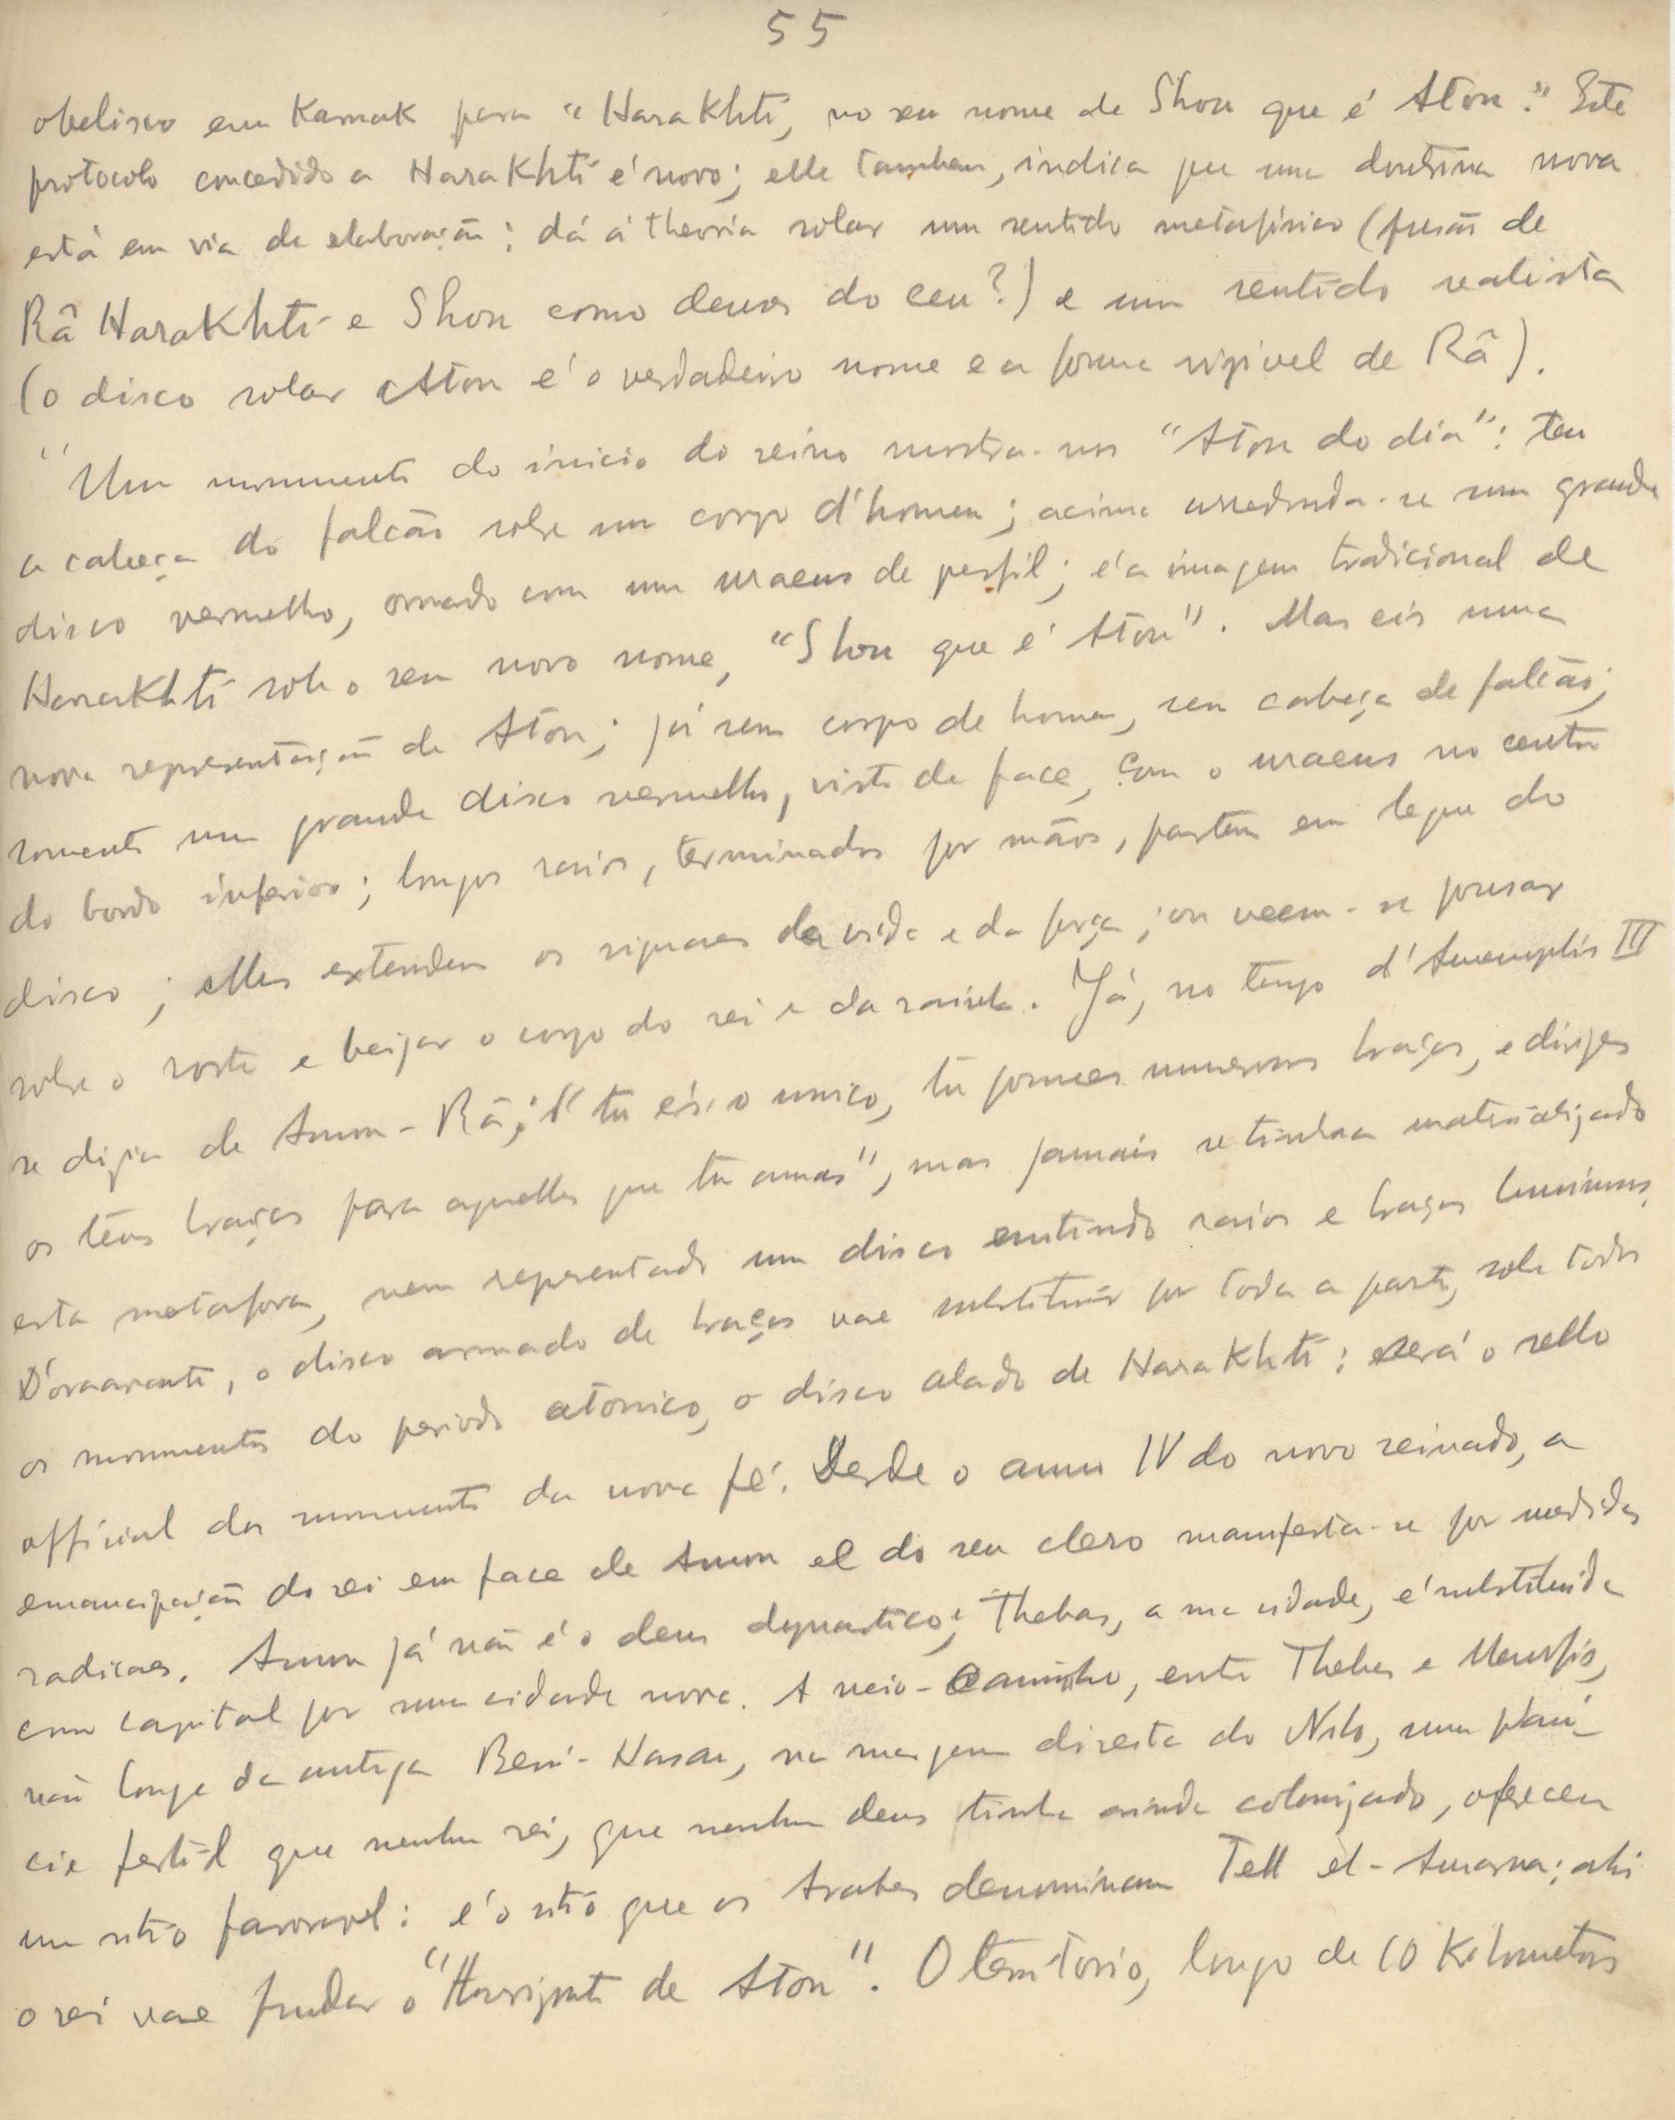 55
obelisco em Karnak para "Harakhti, no seu nome de Shou que é Aton." Este
protocolo concedido a Harakhti é novo; elle tambem, indica que uma doutrina nova
está em via de elaboração: dá á theoria solar um sentido metafísico (fusão de
Râ Harakhti e Shou como deuses do ceu?) e um sentido realista
(o disco solar Aton é o verdadeiro nome e a forma vizivel de Râ).
"Um monumento do inicio do reino mostra-nos "Aton do dia": tem
a cabeça do falcão sobre um corpo d'homem; acima arredonda-se um grande
disco vermelho, ornado com um uraeus de perfil; é a imagem tradicional de
Harakhti sob o seu novo nome, "Shou que é Aton". Mas eis uma
nova representação de Aton; já sem corpo de homem, sem cabeça de falcão;
somente um grande disco vermelho, visto de face, com o uraeus no centro
do bordo inferior; longos raios, terminados por mãos, partem em leque do
disco; elles extendem os signaes da vida e da força; ou veem-se pousar
sobre o rosto e beijar o corpo do rei e da rainha. Já, no tempo d'Amenophis IV
se dizia de Amon-Râ; "tu és o unico, tu possues numerosos braços, e diriges
os teus braços para aquelles que tu amas", mas jamais se tinha materializado
esta metafora, nem representado um disco emitindo raios e braços luminosos.
D'oraavante, o disco armado de braços vae substituir por toda a parte, sobre todos
os monumentos do periodo atonico, o disco alado de Harakhti: será o sello
official dos monumentos da nova fé. Desde o anno IV do novo reinado, a
emancipação do rei em face de Amon e do seu clero manifesta-se por medidas
radicaes. Amon já não é o deus dynastico; Thebas, a sua cidade, é substituida
como capital por uma cidade nova. A meio-caminho, entre Thebas e Memfis,
não longe da antiga Beni-Hasan, na margem direita do Nilo, uma plani-
cie fertil que nenhum rei, que nenhum deus tinha ainda colonizado, oferecem
um sitio favoravel: é o sitio que os Arabes denominam Tell el-Amarna; ahi
o rei vae fundar o "Horizonte de Aton". O territorio, longo de 10 Kilometros